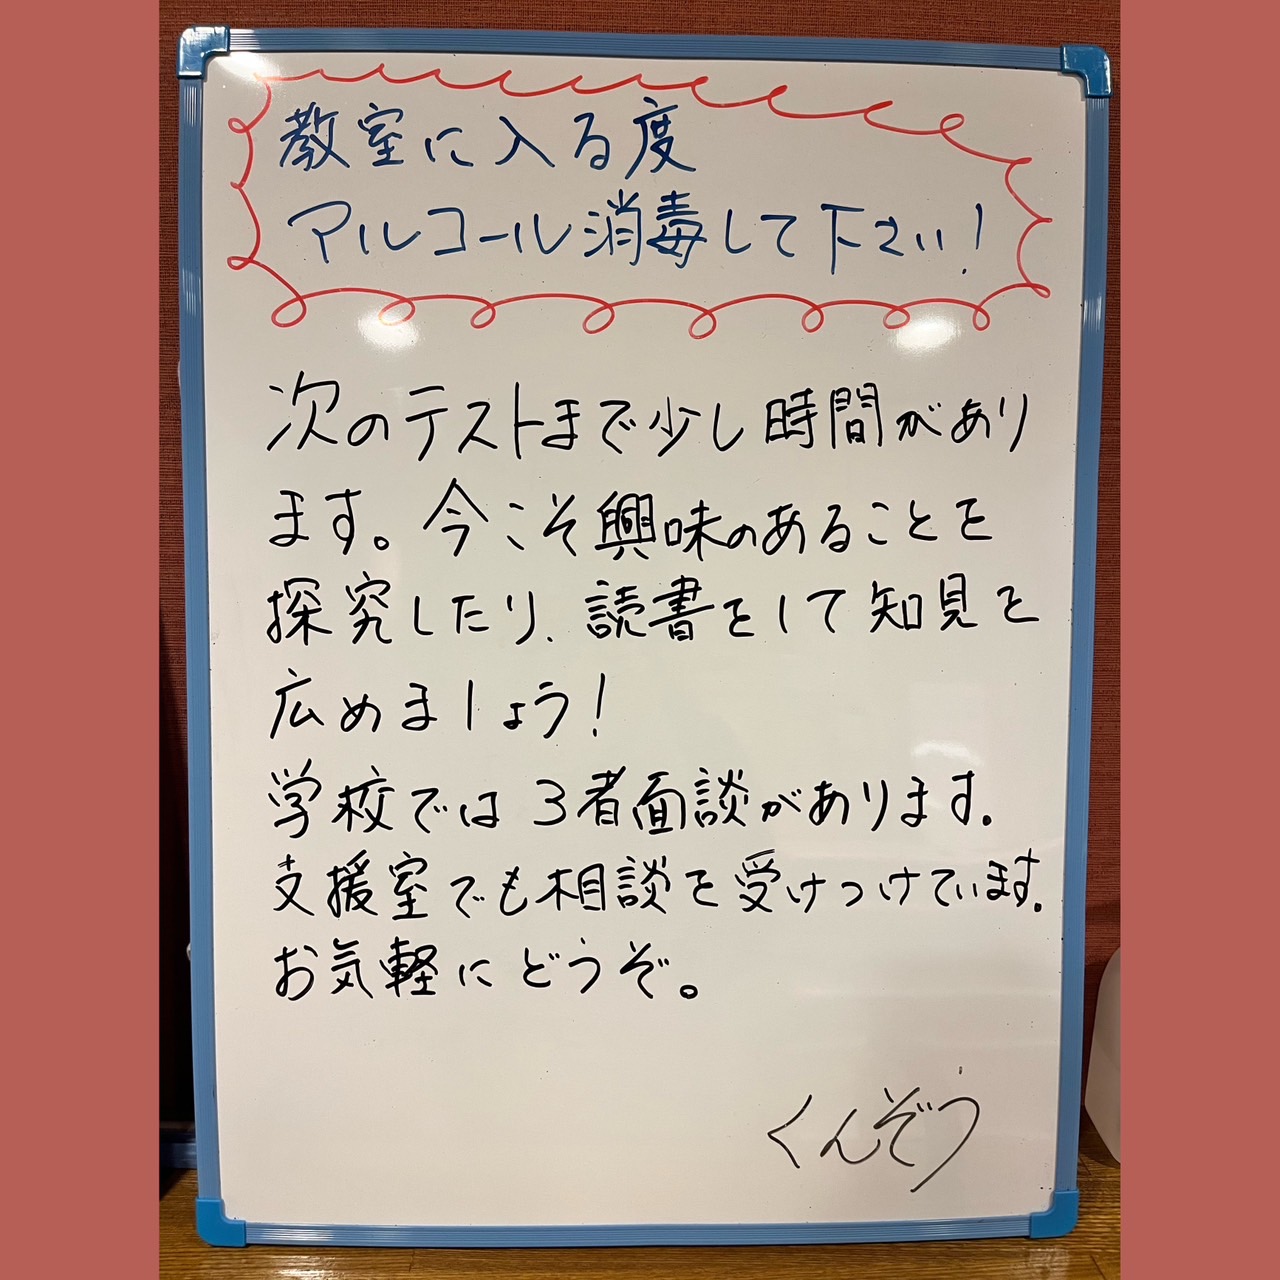 教室に入る度
アルコール消毒して下さい!
次のテストまで少し時間があり
ます。今こそ興味のあることを
探究したり、読書をして知見を
広めましょう!
学校では3者面談があります。
支援室でも相談を受けつけています。
お気軽にどうぞ。
くんぞう